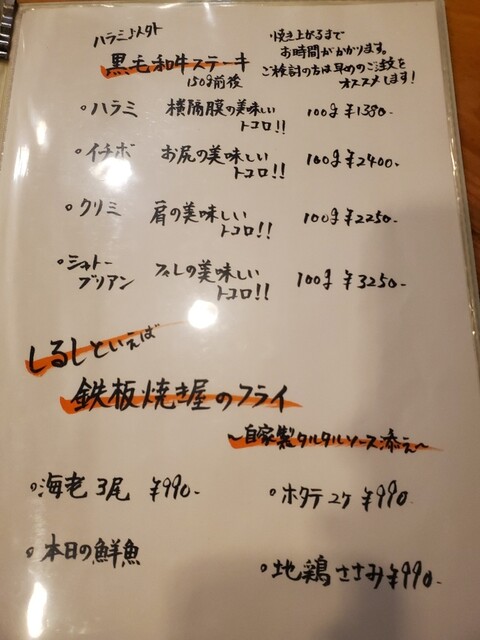 ハラミ以外
黒毛和牛ステーキ
150g前後
焼き上がるまで
お時間がかかります。
ご検討の方は早めのご注文を
オススメします!
○ハラミ 横隔膜の美味しい
トコロ!! 100g ¥1380-
○イチボ お尻の美味しい
トコロ!! 100g ¥2400-
○クリミ 肩の美味しい
トコロ!! 100g ¥2250-
○シャトー
ブリアン フィレの美味しい
トコロ!! 100g ¥3250-
しるしといえば
鉄板焼き屋のフライ
～自家製タルタルソース添え～
○海老 3尾 ¥990-
○ホタテ 2ケ ¥990
○本日の鮮魚
○地鶏ささみ ¥990-